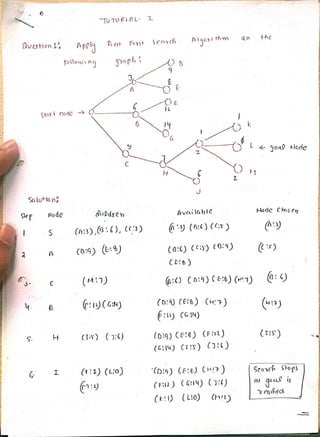 TUTORIAL - 2
Question 1: Apply Best First Search Algorithm on the
following graph:
3
A
D
9
8
E
Start node →
6
B
F
12
14
G
5
C
7
H
5
I
1
K
L ← goal Node
2
M
6
J
Solution:
Step Node Children Available Node Chosen
1 S (A:3) (B:6), (C:5) (A:3) (B:6) (C:5) (A:3)
2 A (D:9) (E:8) (B:6) (C:5) (D:9) (C:5)
(E:8)
3. C (H:7) (B:6) (D:9) (E:8) (H:7) (B:6)
4. B (F:12) (G:14) (D:9) (E:8) (H:7) (H:7)
(F:12) (G:14)
5. H (I:5) (J:6) (D:9) (E:8) (F:12) (I:5)
(G:14) (I:5) (J:6)
6. I (K:1) (L:0) (D:9) (E:8) (H:7) Search stops
(M:2) (F:12) (G:14) (J:6) as goal is
(K:1) (L:0) (M:2) reached